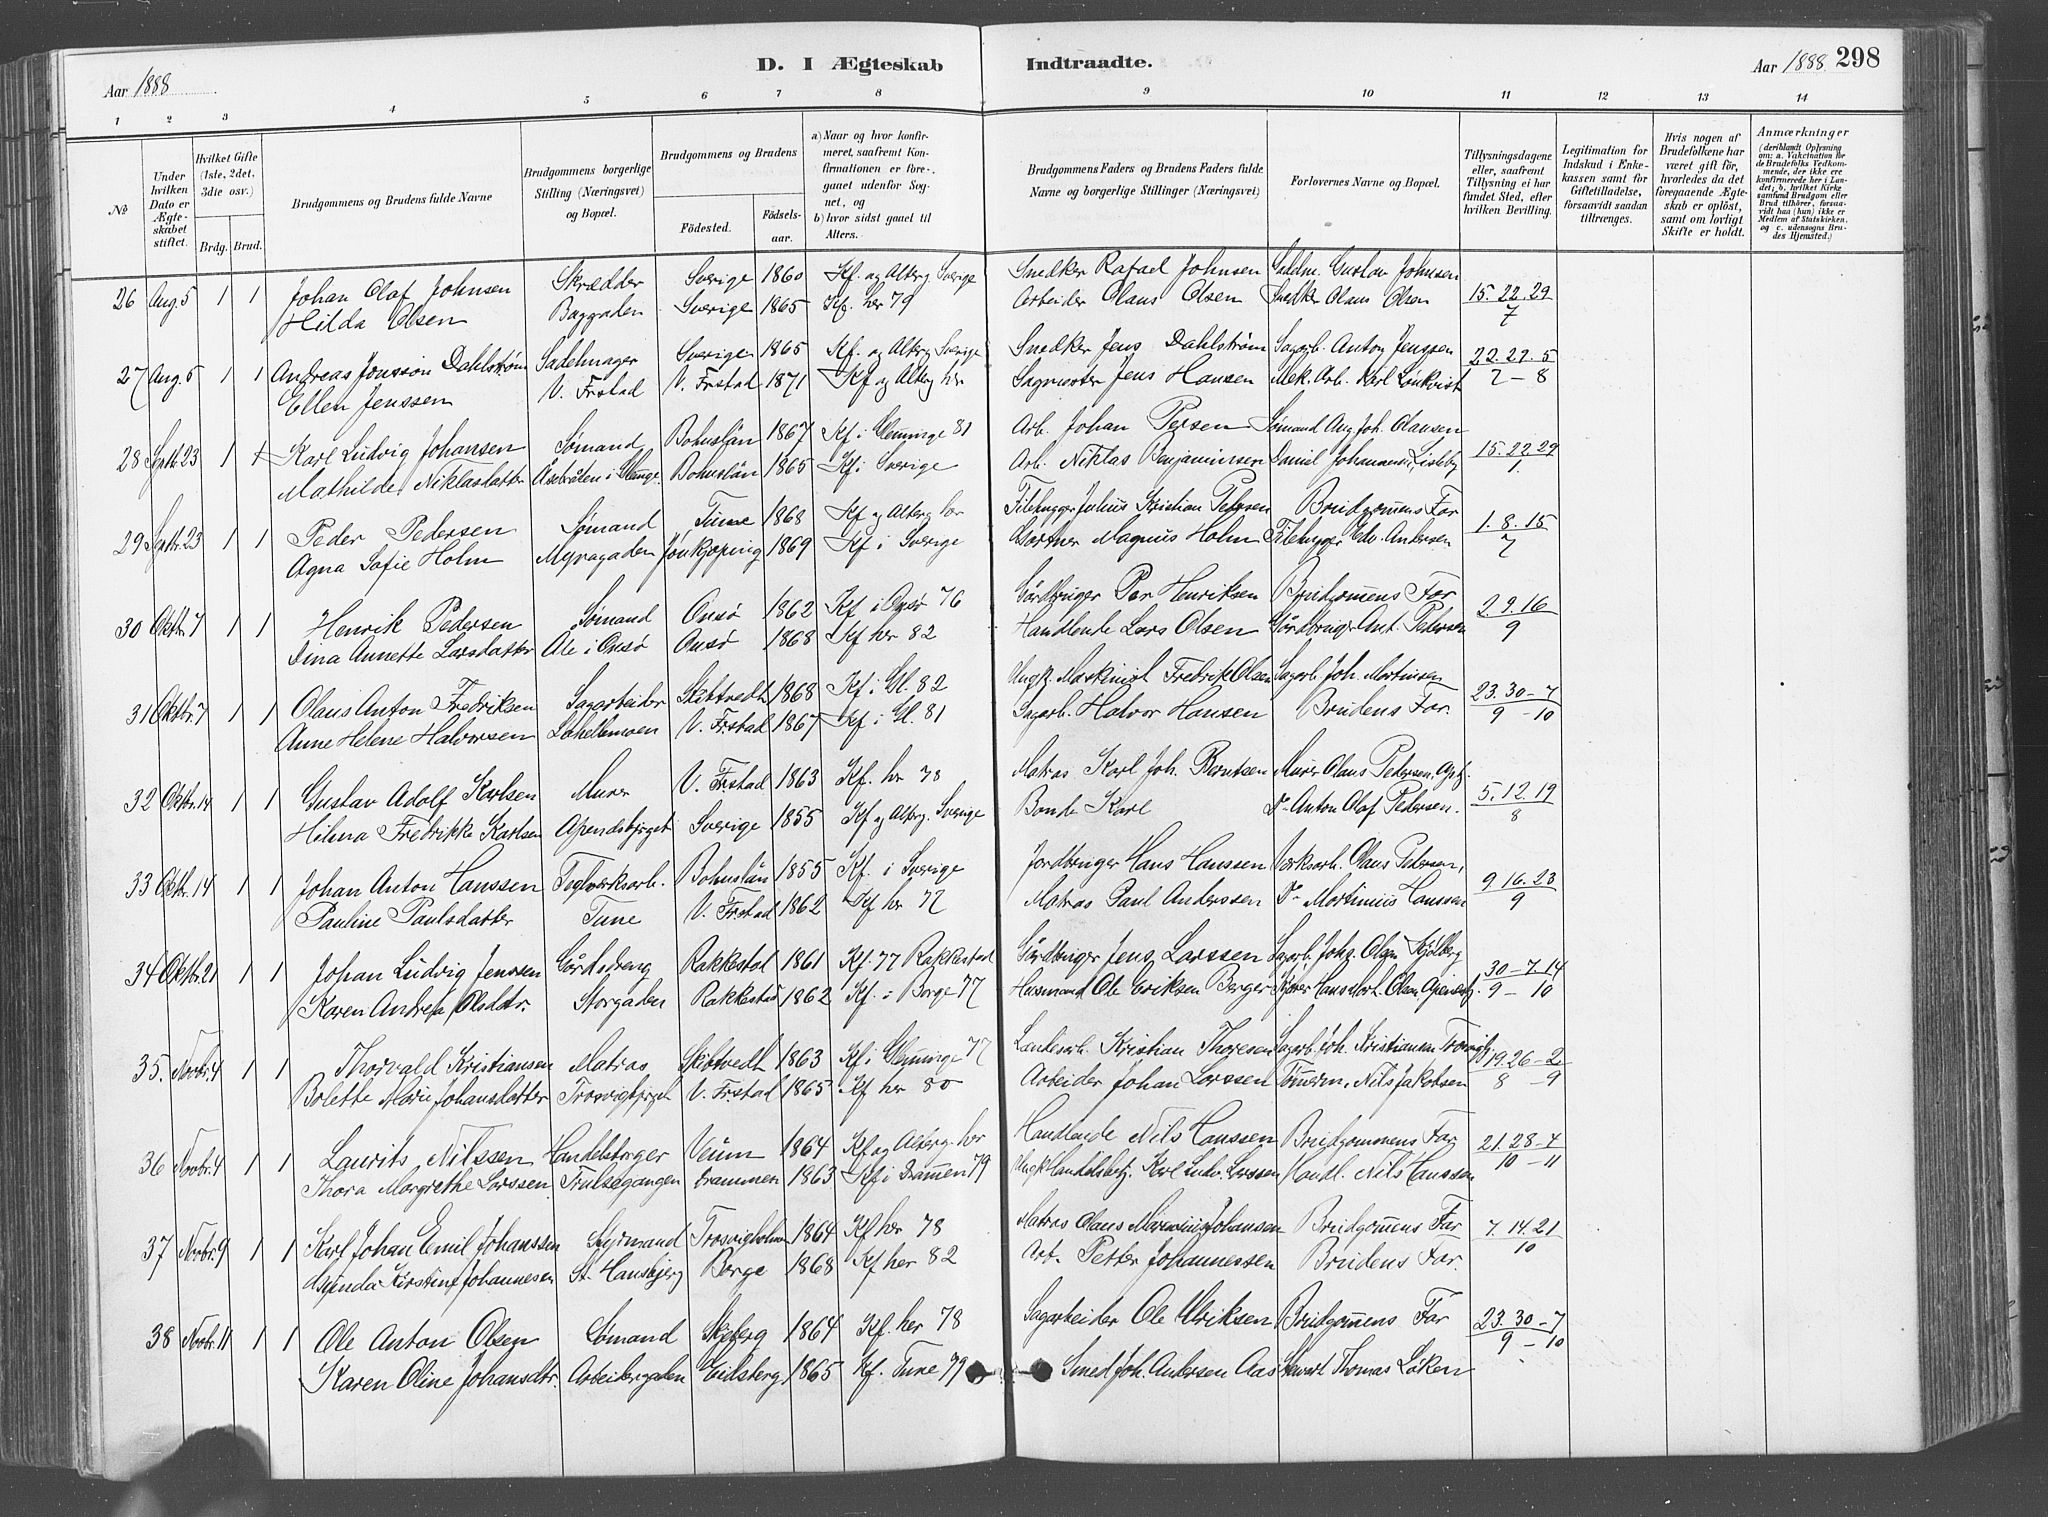 Aar 1888
D. I Ægteskab Indtraadte.
Aar 1888. 298
1 2 3 4 5 6 7 8 9 10 11 12 13 14
№
Under hvilken Dato er Ægteskabet stiftet.
Hvilket Gifte (1ste, 2det, 3die osv.)
Brdg. Brud.
Brudgommens og Brudens fulde Navne
Brudgommens borgerlige Stilling (Næringsvei) og Bopæl.
Brudgommens og Brudens
Fødested.
Fødselsaar.
a) Naar og hvor konfirmeret, saafremt Konfirmationen er foregaaet udenfor Sognet, og
b) hvor sidst gaaet til Alters.
Brudgommens Faders og Brudens Faders fulde Navne og borgerlige Stillinger (Næringsvei)
Forlovernes Navne og Bopæl.
Tillysningsdagene eller, saafremt Tillysning ei har fundet Sted, efter hvilken Bevilling.
Legitimation for Indskud i Enkekassen samt for Giftetilladelse, forsaavidt saadan tiltrænges.
Hvis nogen af Brudefolkene har været gift før, hvorledes da det foregaaende Ægteskab er opløst, samt om lovligt Skifte er holdt.
Anmærkninger (deriblandt Oplysning om: a. Vaccination for de Brudefolks Vedkommende, der ikke ere konfirmerede her i Landet; b. hvilket Kirkesamfund Brudgom eller Brud tilhører, forsaavidt haa (hun) ikke er Medlem af Statskirken. og c. udensogns Brudes Hjemsted.)
26 Aug. 5 1 1 Johan Olaf Johnsen Skrædder Sverige 1860 Kf. og Altерg. Sverige Snedker Rafael Johnsen Gustav Johnsen 15. 22. 29
Hilda Olsen Baggaden Sverige 1865 Kf. her 79 Arbeider Olaus Olsen Snedker Olaus Olsen 7
27 Aug. 5 1 1 Andreas Jonsson Dahlstrøm Sadelmager Sverige 1865 Kf. og Alterg Sverige Snedker Jens Dahlstrøm Sagarb. Anton Jenssen 22. 29. 5
Ellen Jenssen V. Frstad V. Frstad 1871 Kf og Alterg her Sagmester Jens Hansen Mek. Arb. Karl Lönkvist 7 – 8
28 Septr. 23 1 1 Karl Ludvig Johansen Sømand Bohuslän 1867 Kf i Glemminge 81 Arb. Johan Persen Sømand Aug. Joh. Olausen 15. 22. 29
Mathilde Niklasdatter i Glemge. Bohuslän 1865 Kf i Sverige Arb. Niklas Benjaminsen Daniel Johannesen, Lisleby
29 Septr. 23 1 1 Peder Pedersen Sømand Tune 1868 Kf og Alterg her Filehugger Julius Kristian Pedersen Brudgom̅ens Far 1. 8. 15
Agna Sofie Holm Myragaden Jönkjøping 1869 Kf i Sverige Gartner Magnus Holm Filehugger Edv. Andersen 7
30 Oktbr. 7 1 1 Henrik Pedersen Sømand Onsø 1862 Kf i Onsø 76 Gårdbruger Per Henriksen Brudgom̅ens Far 2. 9. 16
Dina Annette Larsdatter Ale i Onsø Onsø 1868 Kf her 82 Handlende Lars Olsen Gårdbruger Ant. Pedersen 9
31 Oktbr. 7 1 1 Olaus Anton Fredriksen Sagarbeider Skibtvedt 1868 Kf i Gl. 82 Ungk. Maskinist Fredrik Olsen Sagarb. Joh. Martinsen 23. 30 – 7
Anne Helene Halvorsen Lahellemoen V. Frstad 1867 Kf i Gl. 81 Sagarb. Halvor Hansen Brudens Far. 9 – 10
32 Oktbr. 14 1 1 Gustav Adolf Karlsen Murer V. Frstad 1863 Kf. her 78 Matros Karl Joh. Berntsen Murer Olaus Pedersen, 5. 12. 19
Hilma Fredrikke Karlsen Apendsbjerget Sverige 1855 Kf og Alterg. Sverige Bonde Karl Do Anton Olaf Pedersen. 8
33 Oktbr. 14 1 1 Johan Anton Hanssen Teglverksarb. Bohuslän 1855 Kf. i Sverige Jordbruger Hans Hanssen Verksarb. Olaus Petersen, 9. 16. 23
Pauline Paulsdatter Tune V. Frstad 1862 Kf her 77 Matros Paul Anderssen Do Martinius Hanssen 9
34 Oktbr. 21 1 1 Johan Ludvig Jenssen Gårdsdreng Rakkestad 1861 Kf. 77 Rakkestad Gårdbruger Jens Larssen Sagarb. Johs. Olsen Kjølberg 30 – 7. 14
Karen Andrea Olsdtr. Storgaden Rakkestad 1862 Kf. i Borge 77 Husmand Ole Eriksen Berger Hans Olsen 9 – 10
35. Novbr. 4 1 1 Thorvald Kristiansen Matros Skibtvedt 1863 Kf i Glem̅inge 77 Kristian Thoresen Sagarb. Joh. Kristiansen 19. 26 – 2
Bolette Marie Johansdatter Trosvigbjerget V. Frstad 1865 Kf her 80 Arbeider Johan Larssen Tømerm. Nils Jakobsen 8 – 9
36 Novbr. 4 1 1 Laurits Nilssen Handelsborger Veum 1864 Kf og Alterg. her Handlende Nils Hanssen Brudgommens Far 21. 28 – 4
Thora Margrethe Larssen Trulsegangen Drammen 1863 Kf i Dram̅en 79 Ungk. Handelsbetj. Karl Ludv. Larssen Handl. Nils Hanssen 10 – 11
37 Novbr. 9 1 1 Karl Johan Emil Johanssen Styrmand Trosvigholmen 1864 Kf her 78 Matros Olaus Johansen Brudgom̅ens Far 7. 14. 21
Kirstine Johannesen St. Hansbjerg Borge 1868 Kf her 82 Arb. Petter Johannessen Brudens Far. 10
38 Novbr. 11 1 1 Ole Anton Olsen Sømand Skjeberg 1864 Kf. her 78 Sagarbeider Ole Ulriksen Brudgom̅ens Far 23. 30 – 7
Karen Oline Johansdtr. Arbeidergaden Eidsberg 1865 Kf. Tune 79 Smed Joh. Andersen Aas Thomas Løken 9 – 10